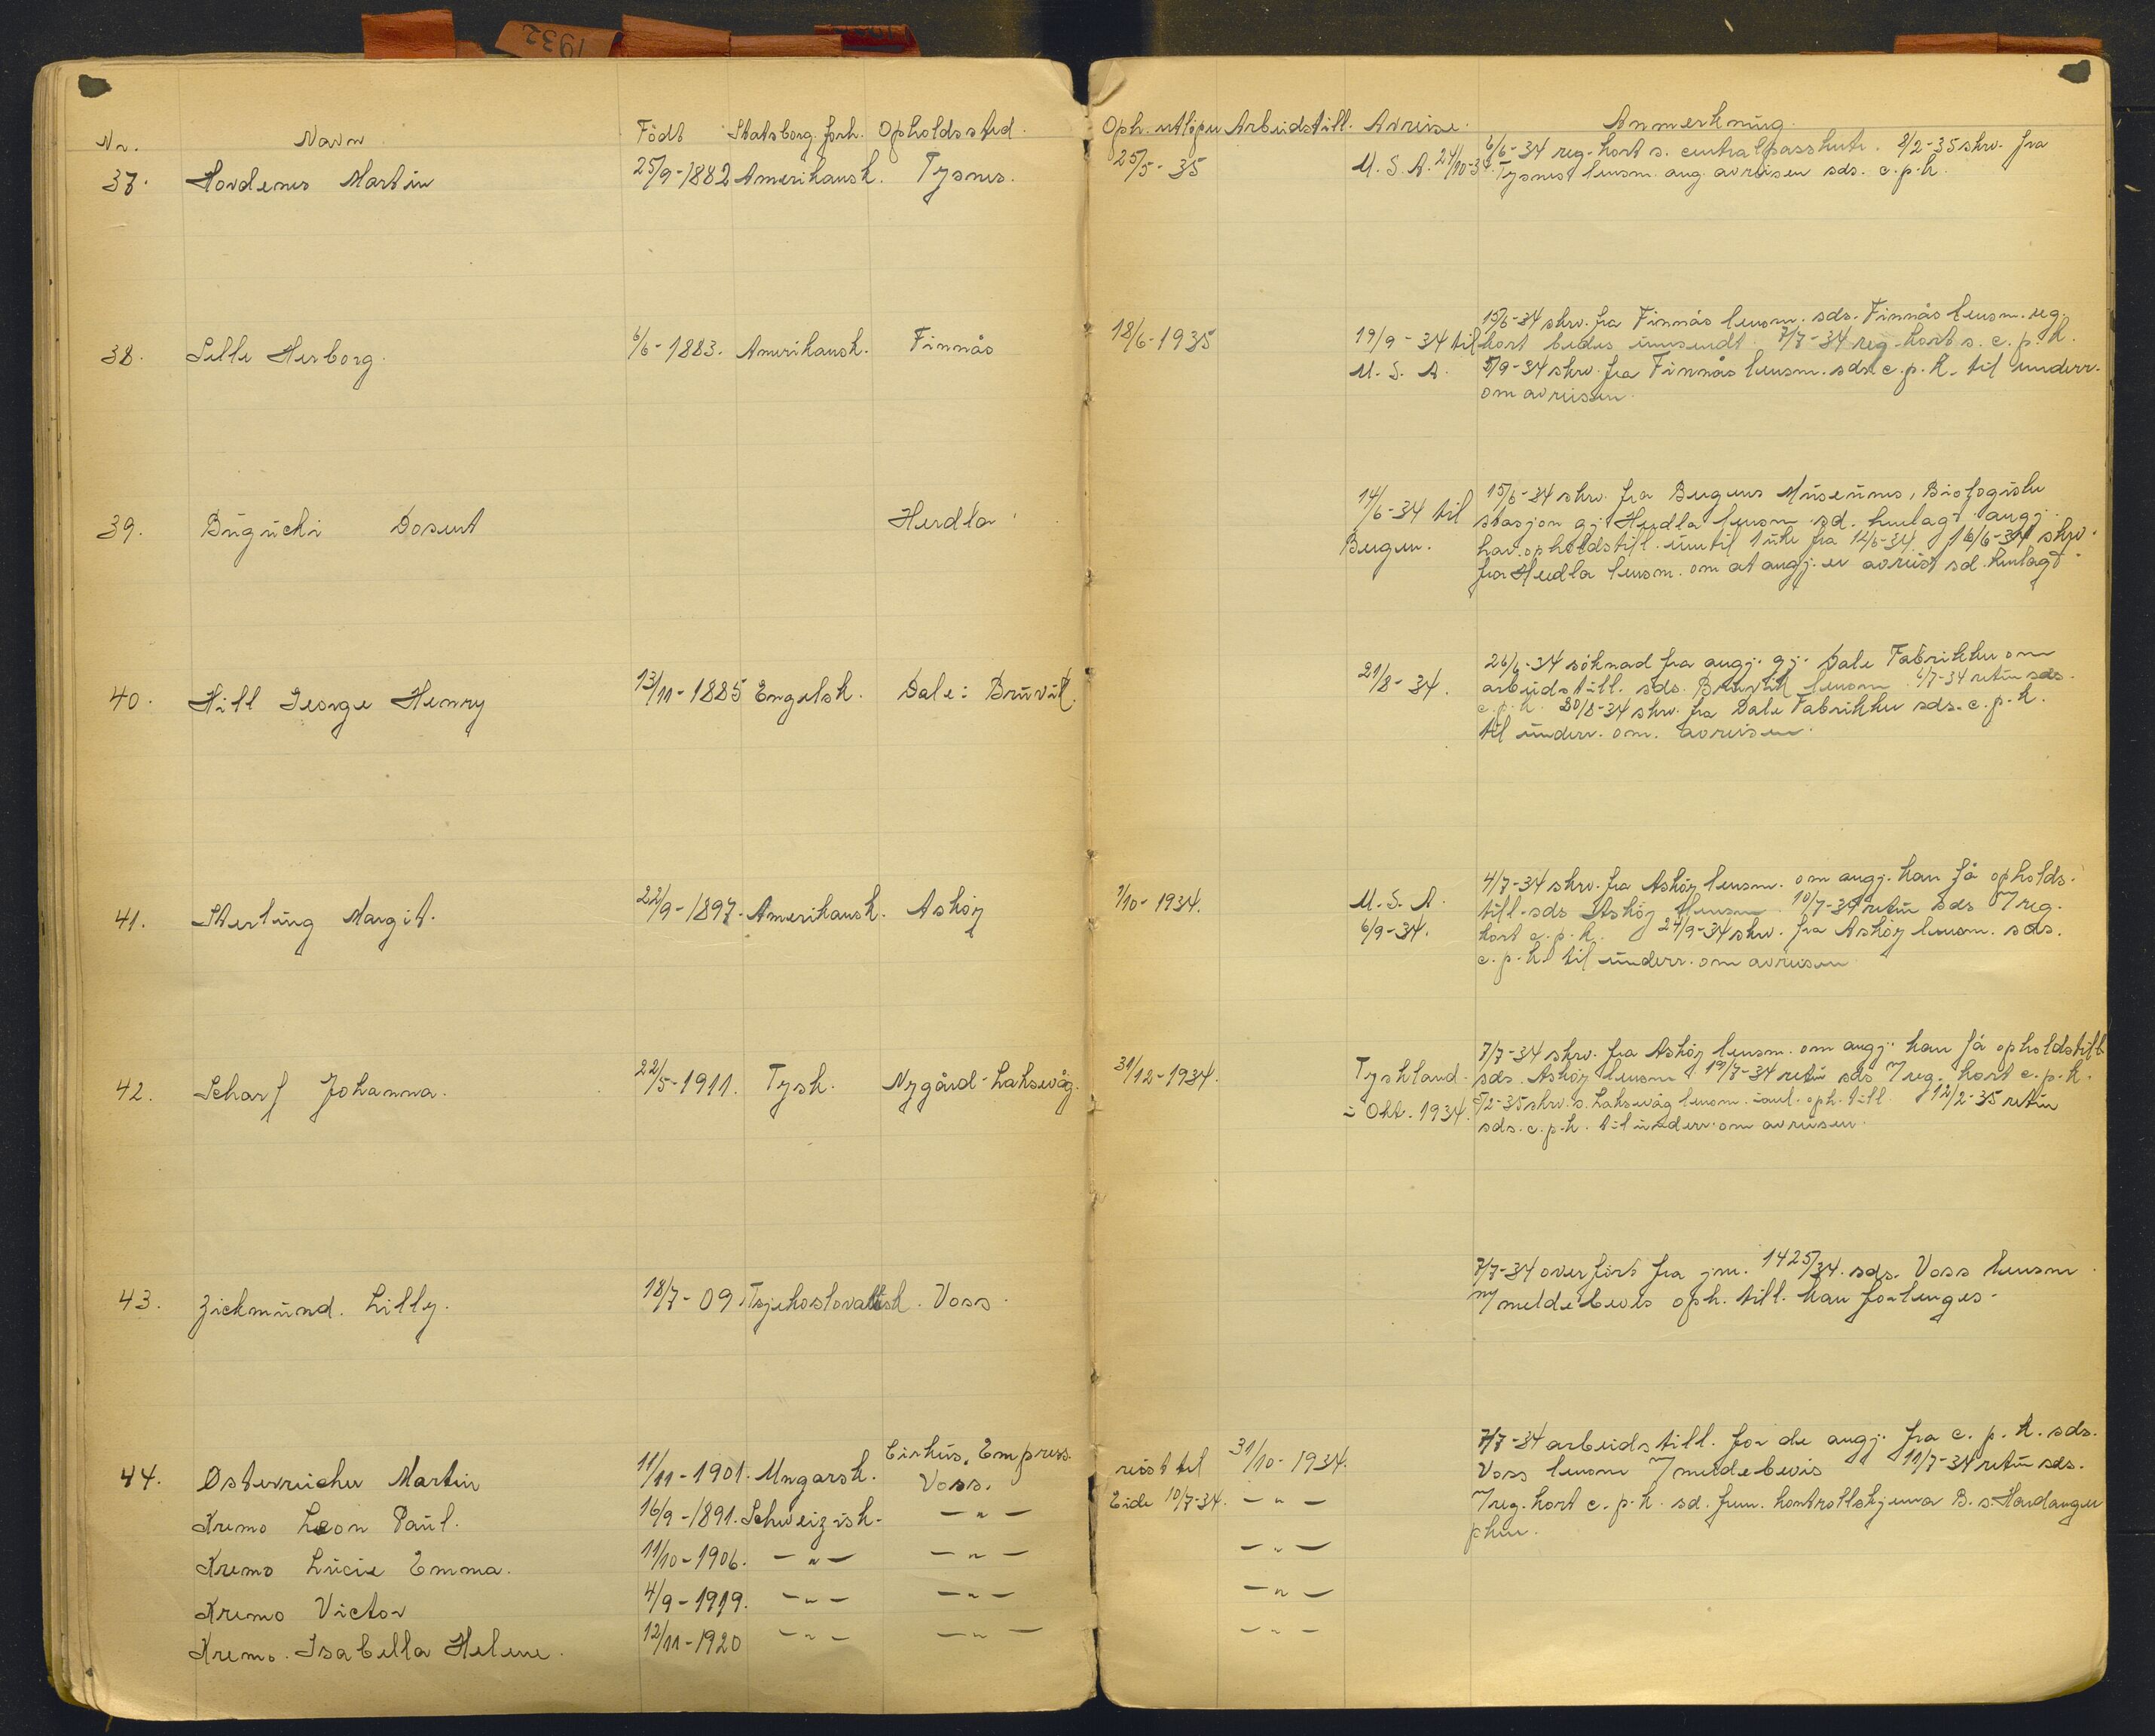 1932
Nr. Navn Födt Statsborg. forh. Opholdssted. Oph. utlöper Arbeidstill. Avreise. Anmerkning.
37. Hovdenes Martin 25/9-1882 Amerikansk. Tysnes. 25/5-35 U.S.A. 24/10-34. 6/6-34 reg-kort s. centralpasskntr. 8/2-35 skrv. fra
Tysnes lensm. ang. avreisen sds. c.p.k.
38. Lille Herborg. 6/6-1883. Amerikansk. Finnås 18/6-1935 19/9-34 til
U.S.A.
15/6-34 skrv. fra Finnås lensm. sds. Finnås lensm. reg.
kort bedes innsendt 7/7-34 reg-kort s. c.p.k.
/9-34 skrv. fra Finnås lensm. sds. c.p.k. til underr.
om avreisen.
39. Búgúchi Dosent Herdla 14/6-34 til
Bergen.
15/6-34 skrv. fra Bergens Museums, Biologiske
stasjon gj. Herdla lensm. sd. henlagt angj.
har opholdstill. inntil 1 uke fra 12/6-34. 16/6-34 skrv.
fra Herdla lensm. om at angj. er avreist sd. henlagt.
40. Hill George Henry 13/11-1885 Engelsk. Dale: Bruvik. 21/8-34.
26/6-34 söknad fra angj. gj. Dale Fabrikker om
arbeidstill. sds. Bruvik lensm. 6/7-34 retur sds.
c.p.k. 20/8-34 skrv. fra Dale Fabrikker sds. c.p.k.
til underr. om. avreisen.
41. Sterling Margit. 22/9-1897. Amerikansk. Asköy 1/10-1934. U.S.A.
6/9-34.
4/7-34 skrv. fra Asköy lensm. om angj. kan få opholds.
till. sds Asköy lensm 10/7-34 retur sds 7 reg.
kort c.p.k. 24/9-34 skrv. fra Asköy lensm. sds.
c.p.k. til underr. om avreisen
42. Scharf Johanna. 22/5-1911. Tysk. Nygård-Laksevåg. 31/12-1934. Tyskland.
i Okt. 1934.
7/7-34 skrv. fra Asköy lensm. om angj. kan få opholdstill
sds. Asköy lensm 19/7-34 retur sds 7 reg. kort c.p.k.
5/2-35 skrv. s. Laksevåg lensm. oph. till. 12/2-35 retur
sds. c.p.k. til underr. om avreisen.
43. Zickmúnd. Lilly. 18/7-09. Tsjekoslovakisk. Voss.
7/7-34 overfört fra jnr. 1425/34. sds. Voss lensm.
m/ meldebevis oph. till. kan forlenges.
44. Österreicher Martin 11/11-1901. Ungarsk. Cirkús. Empress.
Voss. reist til
Eide 10/7-34. 31/10-1934.
7/7-34 arbeidstill. for de angj. fra c.p.k. sds.
Voss lensm 7 meldebevis 11/7-34 retur sds.
7 reg. kort c.p.k. sd. Hardanger
Kremo Leon Paúl. 16/9-1891. Schweizisk. — " — — " —
Kremo Lúcie Emma. 11/10-1906. — " — — " — — " —
Kremo Victor 4/9-1919. — " — — " — — " —
Kremo. Isabella Helene. 12/11-1920 — " — — " — — " —